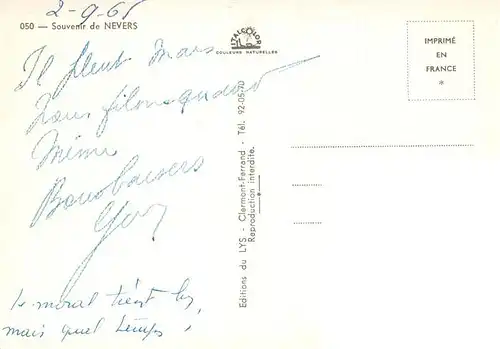 2-9-65
050 — Souvenir de NEVERS
Il pleut mais
nous filons quand
Même
Bons baisers
le moral tient bon,
mais quel temps !
ITALCOLOR
COULEURS NATURELLES
IMPRIMÉ
EN
FRANCE
*
Editions du LYS - Clermont-Ferrand - Tél. 92-05-70
Reproduction interdite.